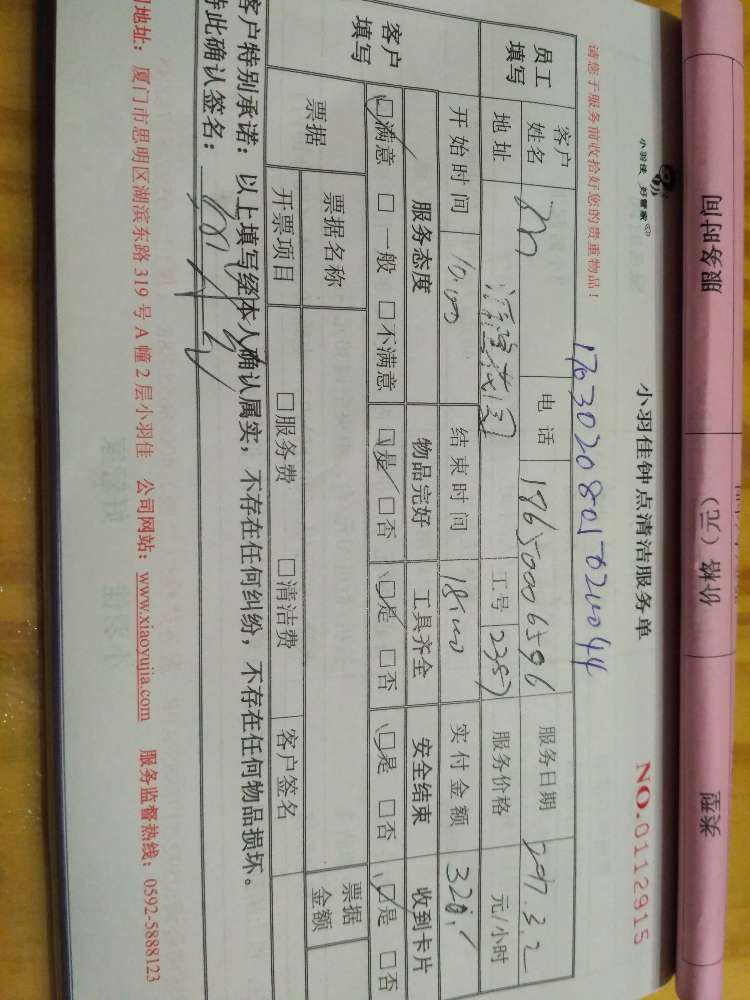 服务时间
价格（元）
类型
小羽佳 好管家
小羽佳钟点清洁服务单
NO.0112915
请您于服务前收拾好您的贵重物品！
员工填写
客户姓名
电话
服务日期
2017.3.2
地址
工号
服务价格
元/小时
开始时间
10:00
结束时间
18:00
实付金额
320.
客户填写
服务态度
物品完好
工具齐全
安全结束
收到卡片
□满意 □一般 □不满意
□是 □否
□是 □否
□是 □否
□是 □否
票据
票据名称
票据金额
开票项目
□服务费
□清洁费
客户签名
客户特别承诺：以上填写经本人确认属实，不存在任何纠纷，不存在任何物品损坏。
特此确认签名：
司地址：厦门市思明区湖滨东路 319 号 A 幢 2 层小羽佳 公司网站：www.xiaoyujia.com 服务监督热线：0592-5888123